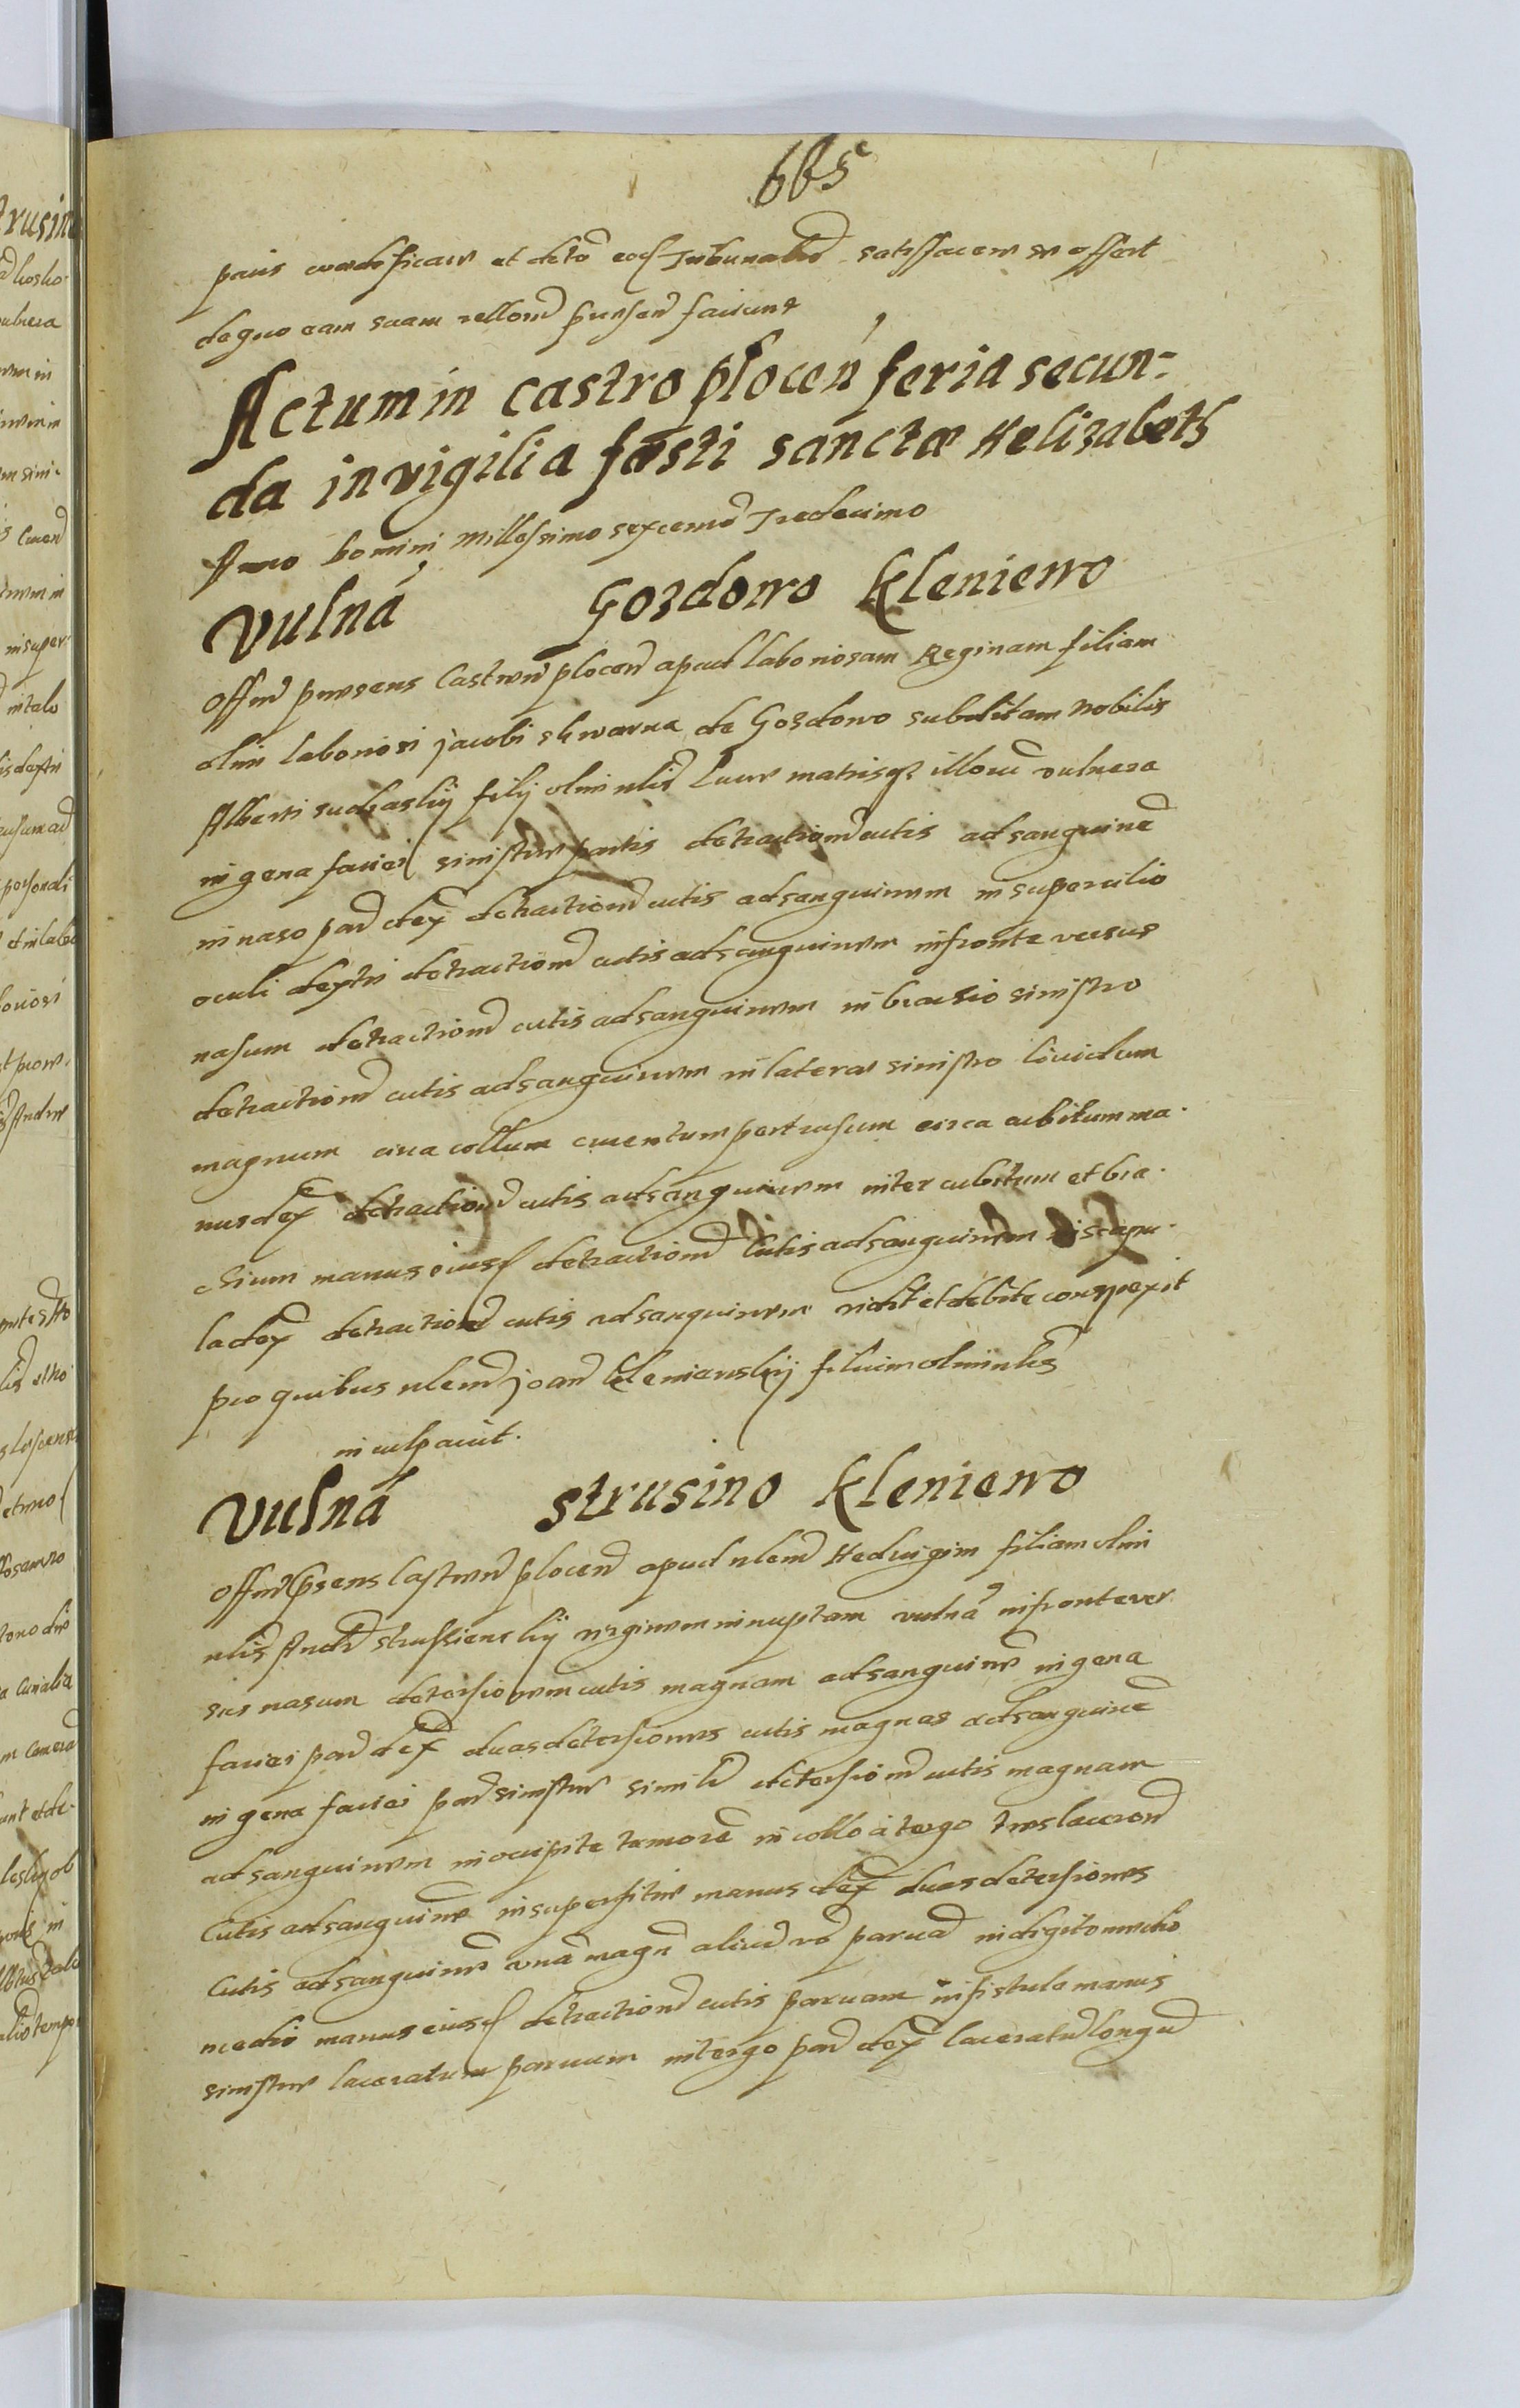 665
et deto Tribunal satisfacere se offert
de quo eam suam faciunt
Actum in castro plocen feria secun-
da in vigilia festi sanctæ Helizabeth
Anno Domini Millesimo sexcenmo Tredecimo
Vulna Gozdowo Kleniewo
Offm præsens Castren plocen apud laboriosam Reginam filiam
olim laboriosi Jacobi skwarna de Gozdowo subditam Nobilis
Alberti suchaskij filij olim nlis Lucæ matrisqz illorum vulnera
in gena faciei sinistræ partis detractionem cutis ad sanguinem
in naso par dex detractionem cutis ad sanguinem in supercilio
oculi dextri detractionem cutis ad sanguinem in fronte versus
nasum detractionem cutis ad sanguinem in brachio sinistro
detractionem cutis ad sanguinem in latere sinistro lividum
magnum circa collum cruentum pertrusum circa cubitum ma-
nus dex detractionem cutis ad sanguinem inter cubitum et bra-
chium manus eiusd detractionem Cutis ad sanguinem in scapu-
la dex detractionem cutis ad sanguinem vidit et debite conspexit
pro quibus nlem Joan Klenianskij filium olim nlis
inculpavit.
Vulna Strusino Kleniewo
Offm psens Castren plocen apud nlem Heduigim filiam olim
nlis And strussienskij virginem innuptam vulna in fronte ver
sus nasum detersionem cutis magnam ad sanguinem in gena
faciei par dex duas detersiones cutis magnas ad sanguinem
in gena faciei par sinistræ simil detersionem cutis magnam
ad sanguinem in occipite tumorem in collo a tergo tres laceron
Cutis ad sanguinem in superfitie manus dex duas detersiones
Cutis ad sanguinem una magn alia vo parua in digito
medio manus eiusd detractionem cutis paruam in fistula manus
sinistræ laceratum paruum in tergo par dex laceratum longum